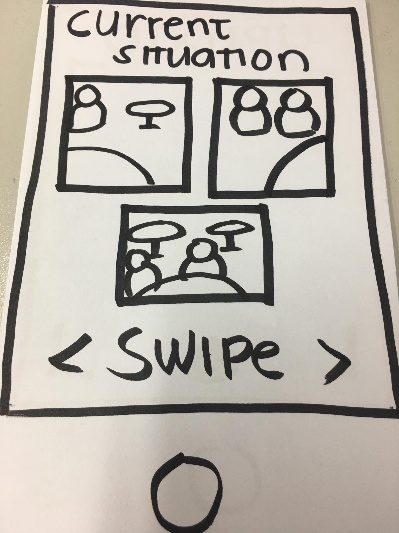 CURRENT
SITUATION
< SWIPE >